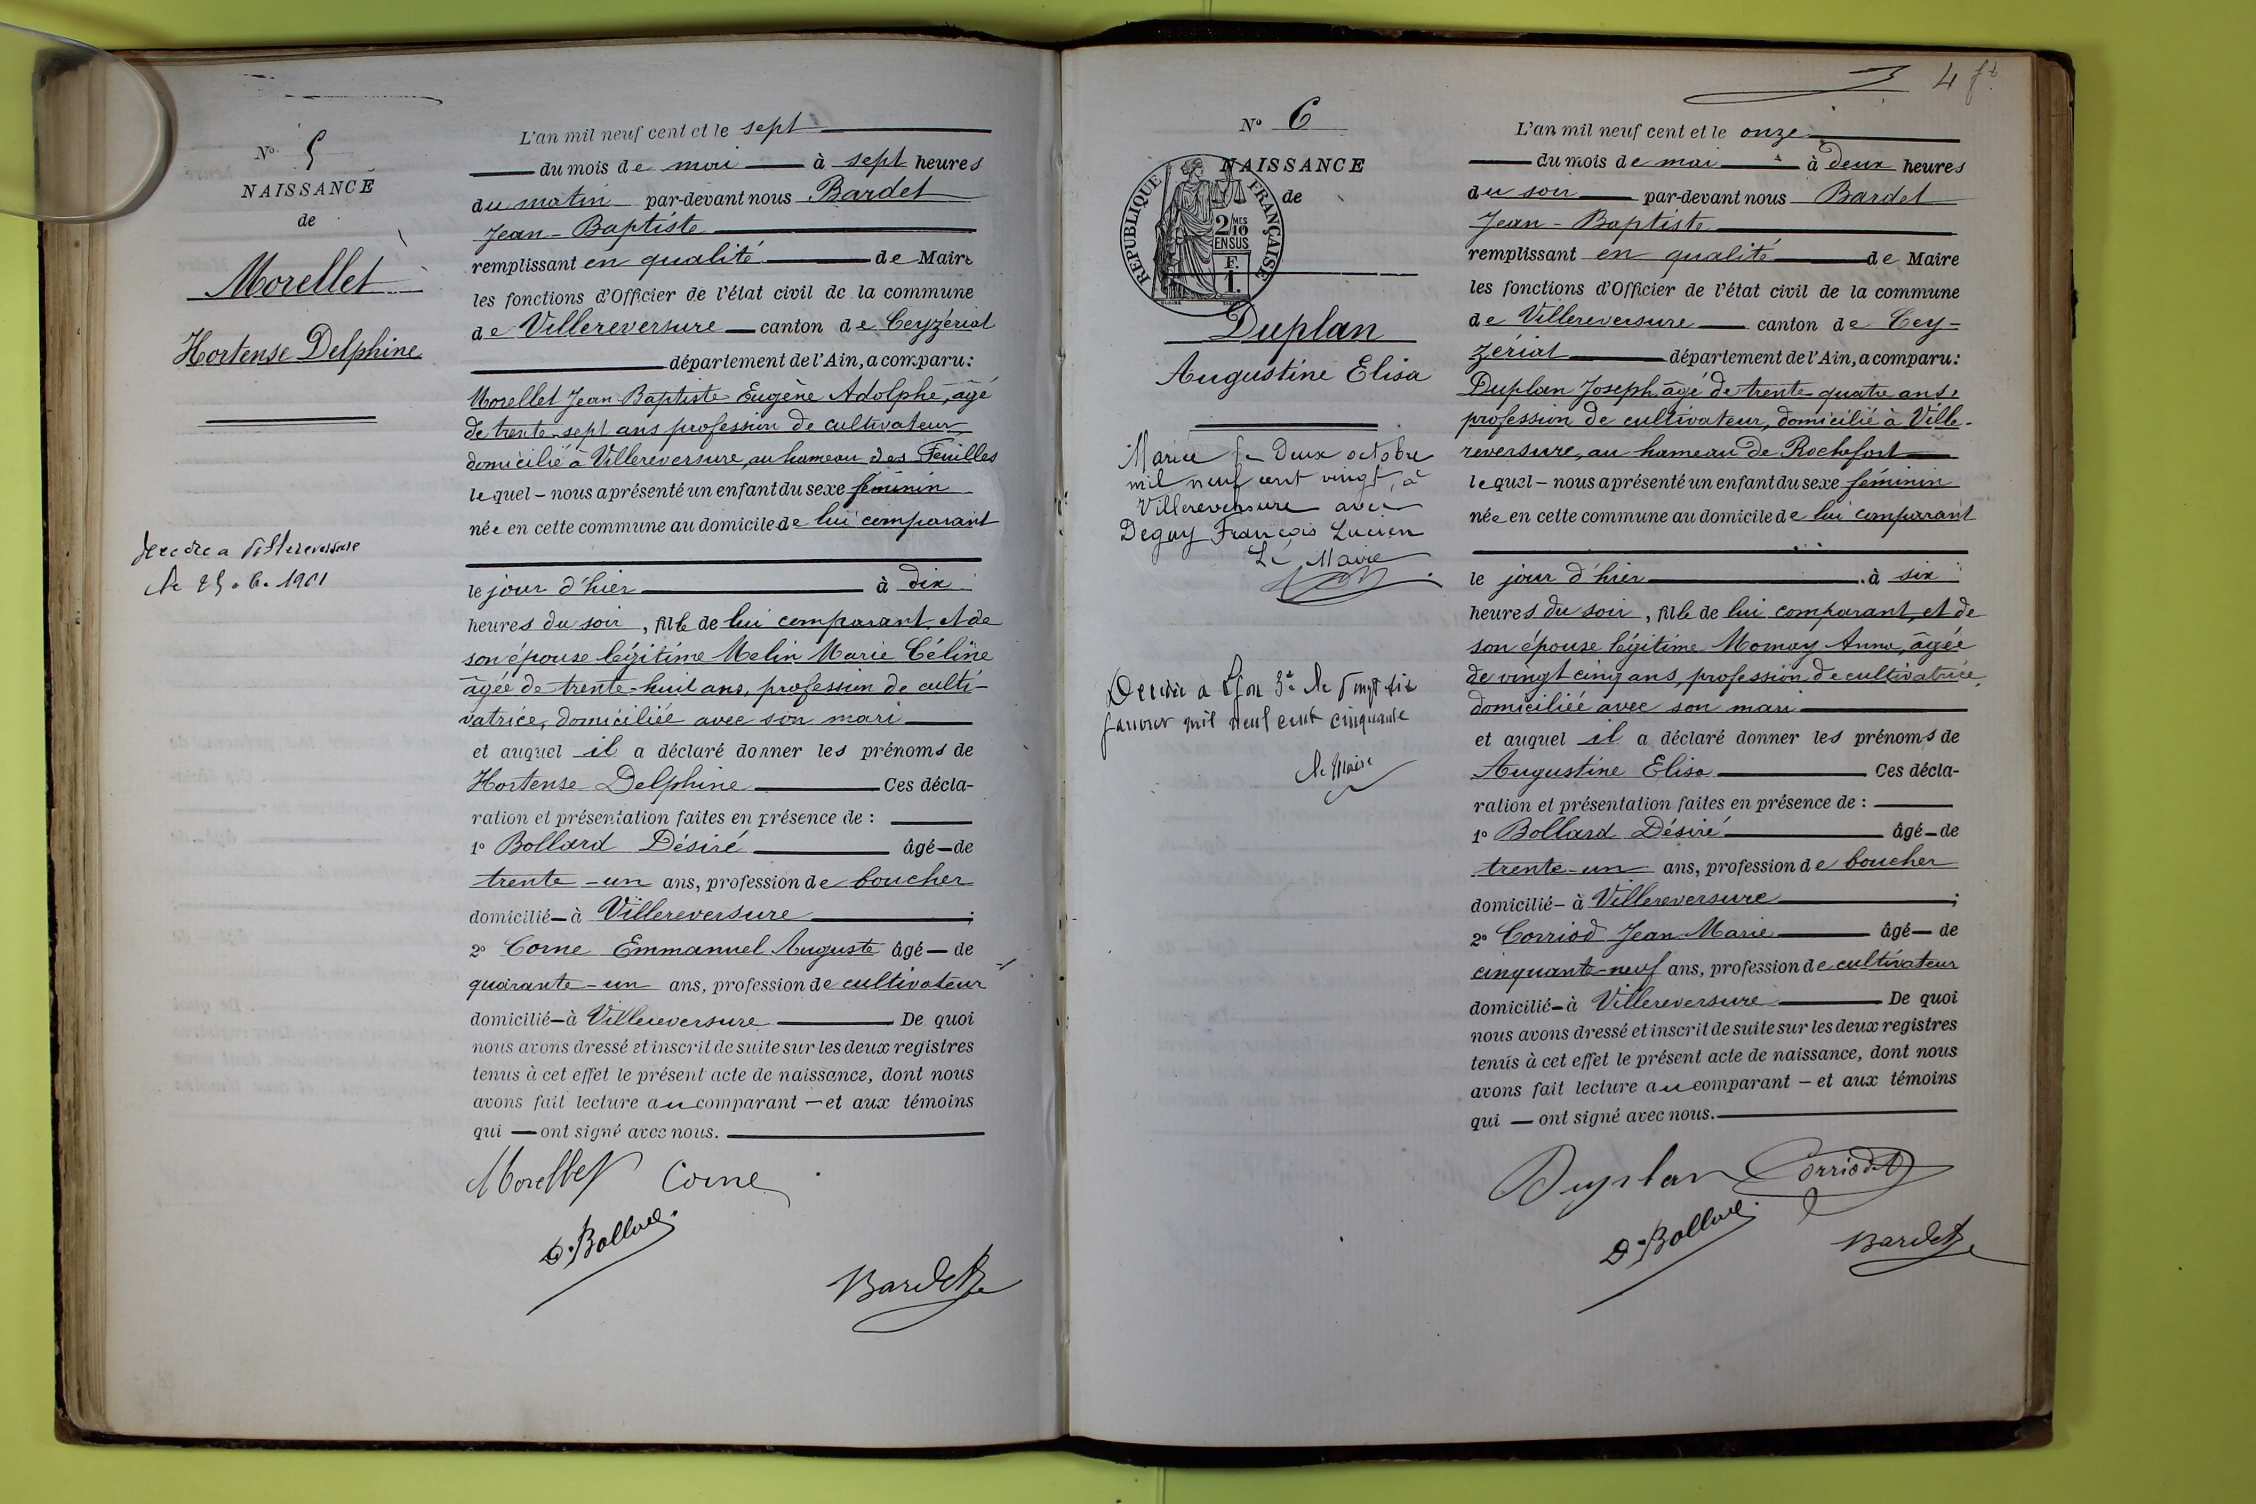 Nº 5
NAISSANCE
de
Morellet
Hortense Delphine
à Villereversure
le 1901
L'an mil neuf cent et le sept
du mois de mai à sept heures
du matin par-devant nous Bardet
Jean-Baptiste
remplissant en qualité de Maire
les fonctions d'Officier de l'état civil de la commune
de Villereversure canton de Ceyzériat
département de l'Ain, a comparu:
Morellet Jean Baptiste Eugène Adolphe, âgé
de trente-sept ans profession de cultivateur
domicilié à Villereversure, au hameau des Feuilles
lequel – nous a présenté un enfant du sexe féminin
née en cette commune au domicile de lui comparant
le jour d'hier à dix
heures du soir, fille de lui comparant et de
son épouse légitime Melin Marie Céline
âgée de trente-huit ans, profession de culti-
vatrice, domiciliée avec son mari
et auquel il a déclaré donner les prénoms de
Hortense Delphine Ces décla-
ration et présentation faites en présence de :
1º Bollard Désiré âgé – de
trente-un ans, profession de boucher
domicilié – à Villereversure ;
2º Corne Emmanuel Auguste âgé – de
quarante-un ans, profession de cultivateur
domicilié – à Villereversure De quoi
nous avons dressé et inscrit de suite sur les deux registres
tenus à cet effet le présent acte de naissance, dont nous
avons fait lecture au comparant – et aux témoins
qui – ont signé avec nous.
Morellet Corne
D. Bollard
Bardet
4 ft
Nº 6
NAISSANCE
de
RÉPUBLIQUE FRANÇAISE
2/10 MES
EN SUS
F.
1.
Duplan
Augustine Elisa
Mariée le Deux octobre
mil neuf cent vingt, à
Villereversure avec
Degay François Lucien
Le Maire
Décédée à Lyon 3e le vingt six
janvier mil neuf cent cinquante
le Maire
L'an mil neuf cent et le onze
du mois de mai à deux heures
du soir par-devant nous Bardet
Jean-Baptiste
remplissant en qualité de Maire
les fonctions d'Officier de l'état civil de la commune
de Villereversure canton de Cey=
zériat département de l'Ain, a comparu:
Duplan Joseph âgé de trente-quatre ans,
profession de cultivateur, domicilié à Ville-
reversure, au hameau de Rochefort
lequel – nous a présenté un enfant du sexe féminin
née en cette commune au domicile de lui comparant
le jour d'hier à six
heures du soir, fille de lui comparant, et de
son épouse légitime Momay Anna, âgée
de vingt cinq ans, profession de cultivatrice,
domiciliée avec son mari
et auquel il a déclaré donner les prénoms de
Augustine Elisa Ces décla-
ration et présentation faites en présence de :
1º Bollard Désiré âgé – de
trente-un ans, profession de boucher
domicilié – à Villereversure ;
2º Corriod Jean Marie âgé – de
cinquante-neuf ans, profession de cultivateur
domicilié – à Villereversure De quoi
nous avons dressé et inscrit de suite sur les deux registres
tenus à cet effet le présent acte de naissance, dont nous
avons fait lecture au comparant – et aux témoins
qui – ont signé avec nous.
Duplan Corriod
D. Bollard
Bardet